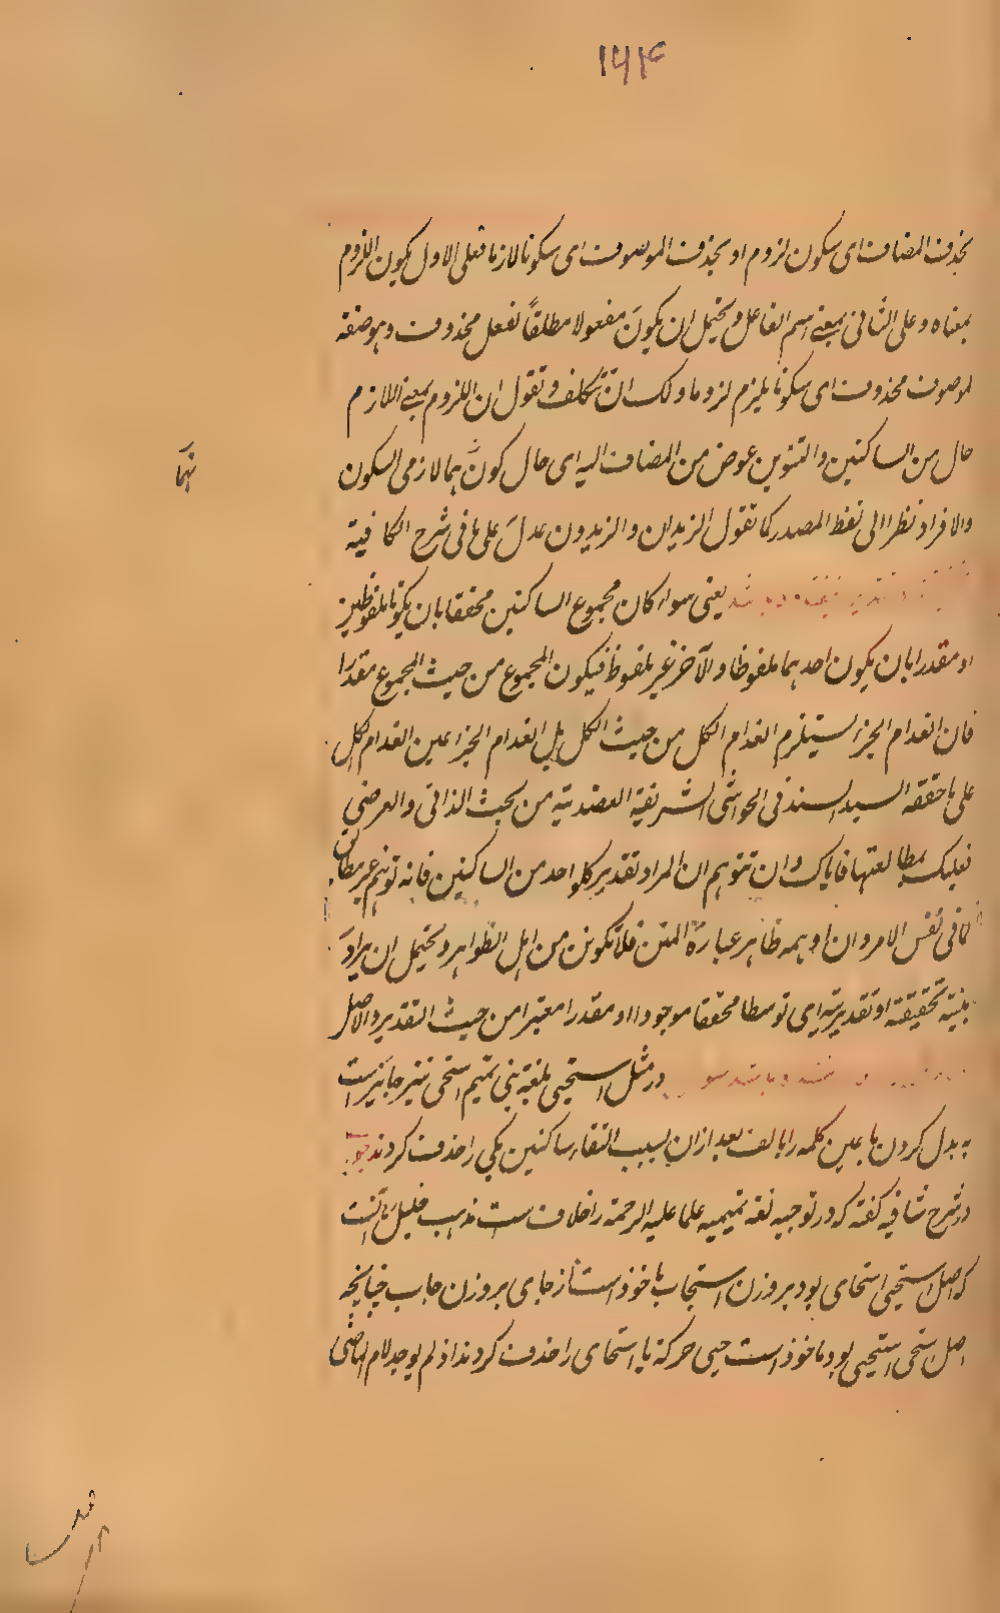 ۱۶۴
بحذف المضاف ای سکون لزوم او بحذف الموصوف ای سکونا لازما فعلی الاول یکون اللزوم
بمعناه و علی الثانی بمعنی اسم الفاعل و یحتمل ان یکون مفعولا مطلقاً لفعل محذوف و هو صفة
لموصوف محذوف ای سکونا یلزم لزوما و لک ان تتکلف و تقول ان اللزوم بمعنی اللازم
حال من الساکنین و التنوین عوض من المضاف الیه ای حال کون هما لازمی السکون
نهما
والافراد نظرا الی لفظ المصدر کما تقول الزیدان و الزیدون عدل علی ما فی شرح الکافیة
یعنی سواء کان مجموع الساکنین محققا بان یکونا ملفوظین
او مقدرا بان یکون احدهما ملفوظا و الآخر غیر ملفوظ فیکون المجموع من حیث المجموع مقدرا
فان انعدام الجزء یستلزم انعدام الکل من حیث الکل بل انعدام الجزء عین انعدام الکل
علی ما حققه السید السند فی الحواشی الشریفیة العضدیة من بحث الذاتی و العرضی
فعلیک بمطالعتها فایاک و ان تتوهم ان المراد تقدیر کل واحد من الساکنین فانه توهم غیر مطابق
لما فی نفس الامر و ان اوهمه ظاهر عبارة المتن فلا تکونن من اهل الظواهر و یحتمل ان یراد
بنیته تحقیقیة او تقدیریة ای توسطا محققا موجودا او مقدرا معتبرا من حیث التقدیر و الاصل
در مثل استحیی بلغة بنی تمیم استحی نیز جایز است
به بدل کردن یا عین کلمه را بالف بعد ازان بسبب التقاء ساکنین یکی را حذف کردند
در شرح شافیه گفته که در توجیه لغة تمیمیه علما علیه الرحمة را خلاف ست مذهب خلیل آنست
که اصل استحیی استحای بود بر وزن استجاب ماخوذ است از حای بر وزن جاب چنانچه
اصل استحی استحیی بود ماخوذ است حیی حرکة یا استحای را حذف کردند اذ لم یوجد لام الماضی